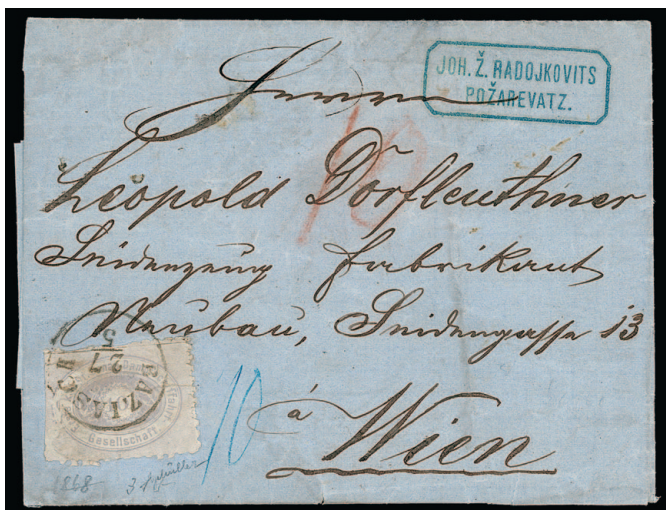 JOH. Ž. RADOJKOVITS
POŽAREVATZ.
Herrn
10
Leopold Dorfleuthner
Seidenzeug Fabrikant
Neubau, Seidengasse 13
à Wien
BAZIASCH
27
5
Gesellschaft
10
1868